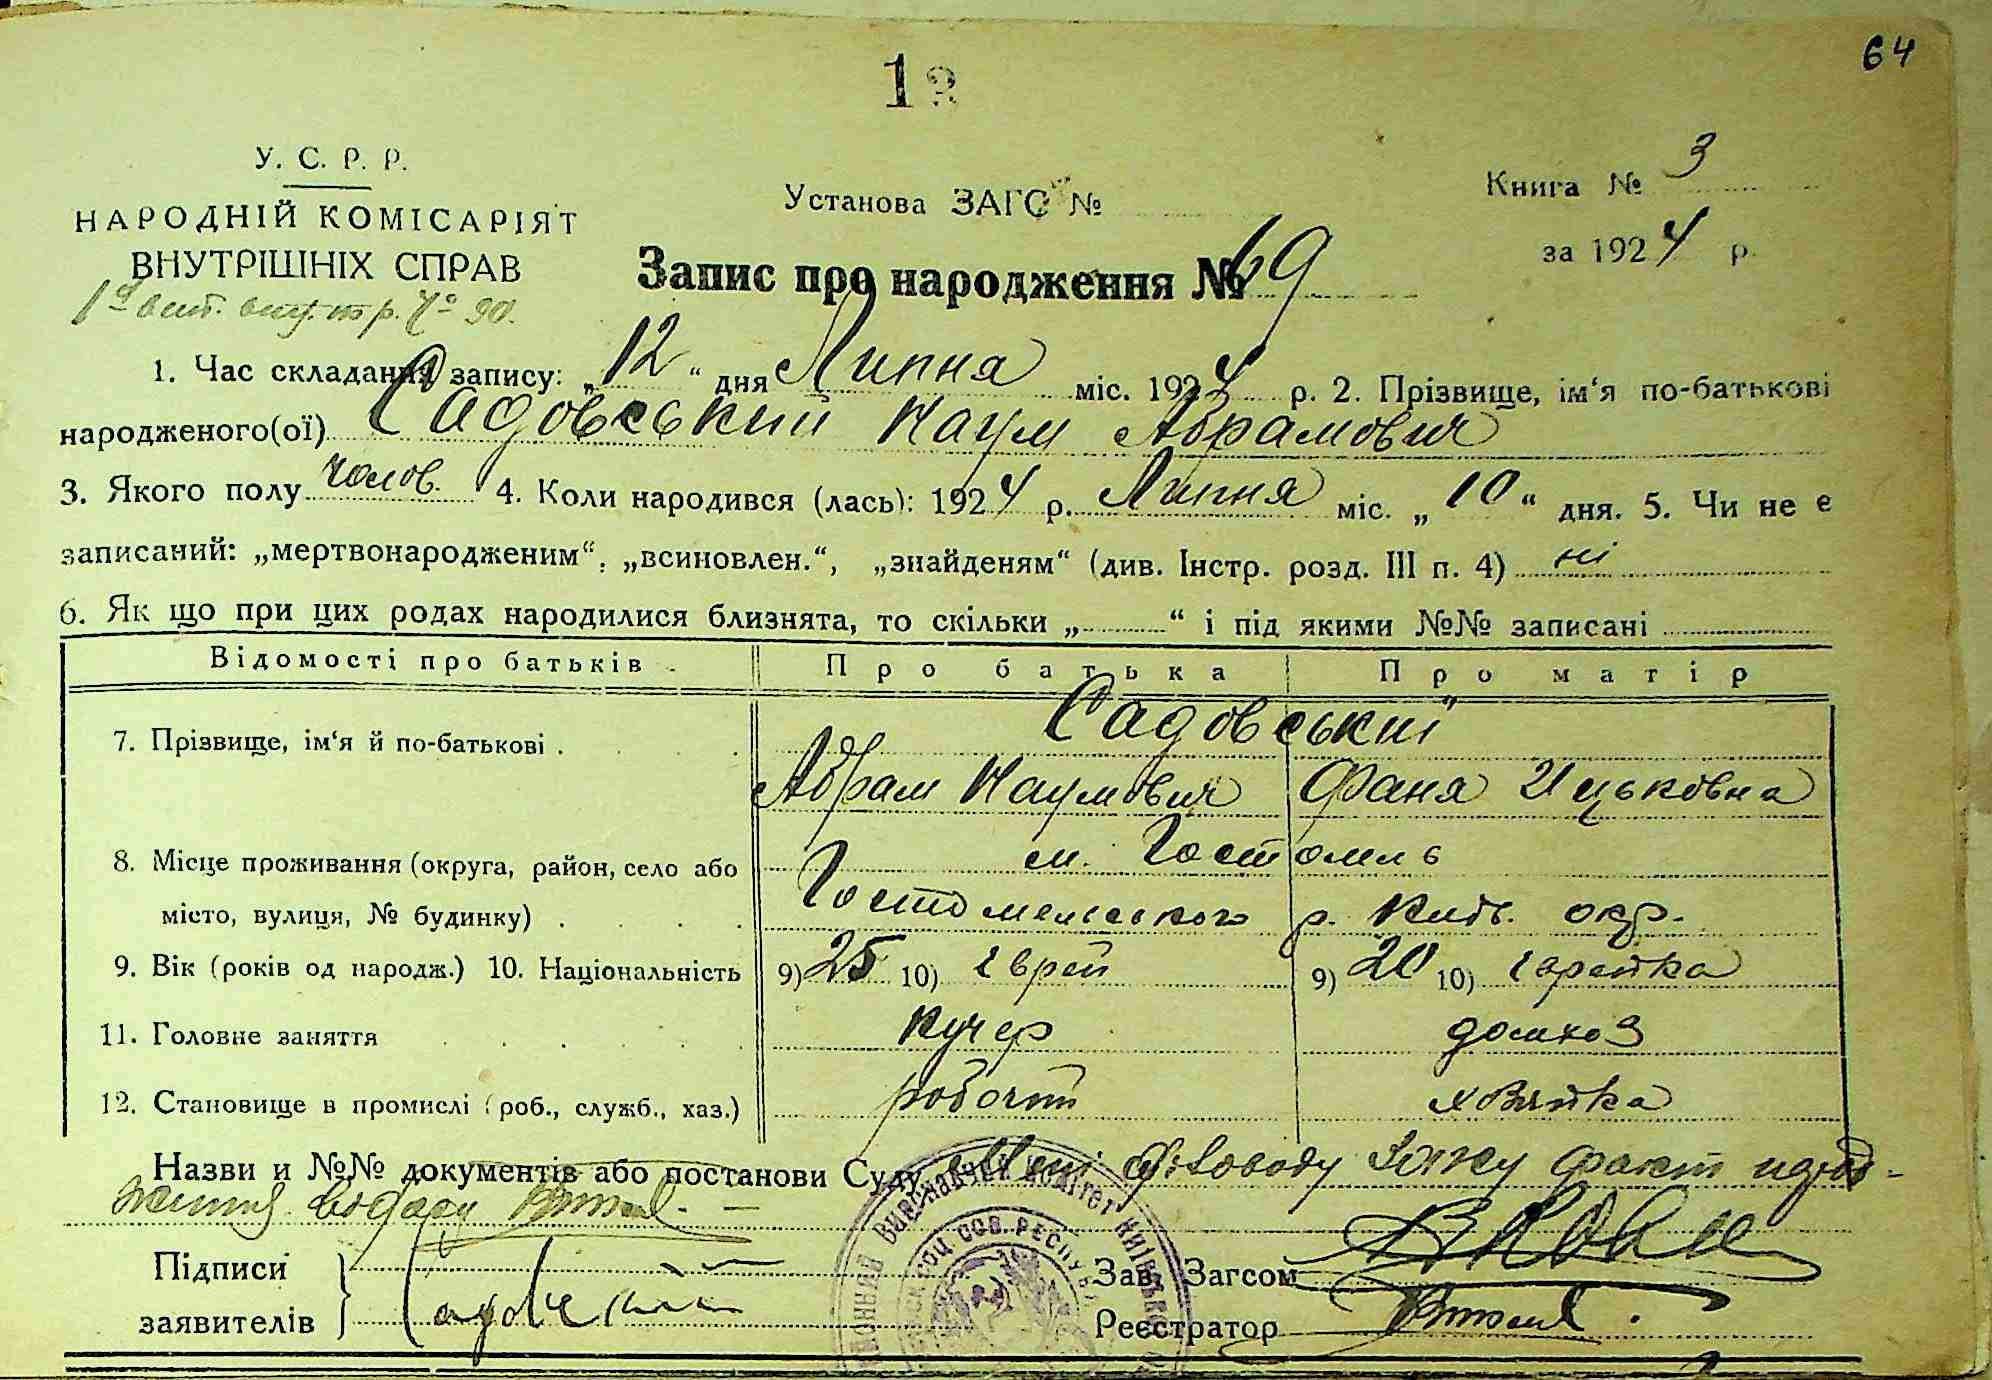 64
1
У. С. Р. Р.
НАРОДНІЙ КОМІСАРІЯТ
ВНУТРІШНІХ СПРАВ
Установа ЗАГС №
Книга № 3
за 1924 р.
Запис про народження № 69
1. Час складання запису: „12“ дня Липня міс. 1924 р. 2. Прізвище, ім‘я по-батькові
народженого(ої) Садовський Наум Абрамович
3. Якого полу чолов. 4. Коли народився (лась): 1924 р. Липня міс. „10“ дня. 5. Чи не є
записаний: „мертвонародженим“, „всиновлен.“, „знайденям“ (див. Інстр. розд. III п. 4) ні
6. Як що при цих родах народилися близнята, то скільки „ “ і під якими №№ записані
Відомості про батьків Про батька Про матір
7. Прізвище, ім‘я й по-батькові . Садовські
Абрам Наумович Фаня Ицьковна
8. Місце проживання (округа, район, село або м. Гостомель
місто, вулиця, № будинку) . Гостомельського р. Київ. окр.
9. Вік (років од народж.) 10. Національність 9) 25 10) єврей 9) 20 10) єврейка
11. Головне заняття кучер домхоз
12. Становище в промислі (роб., служб., хаз.) робочий хозяйка
Назви и №№ документів або постанови Суду факт
Підписи
заявителів
Садовский
Зав. Загсом
Реєстратор
ВИКОНАВЧИЙ КОМІТЕТ
СОЦ. СОВ. РЕСПУБ